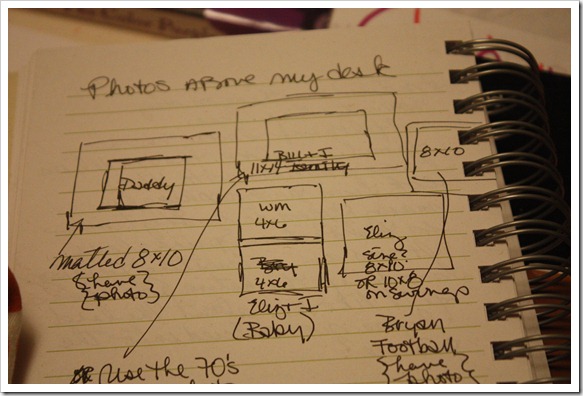 Photos Above my desk
Daddy
matted 8x10
{have}
{photo}
Bill + I
11x14
8x10
wm
4x6
4x6
Eliz + I
(Baby)
Eliz
8x10
or 10x8
on swings
Bryan
Football
{have}
{photo}
or Use the 70's